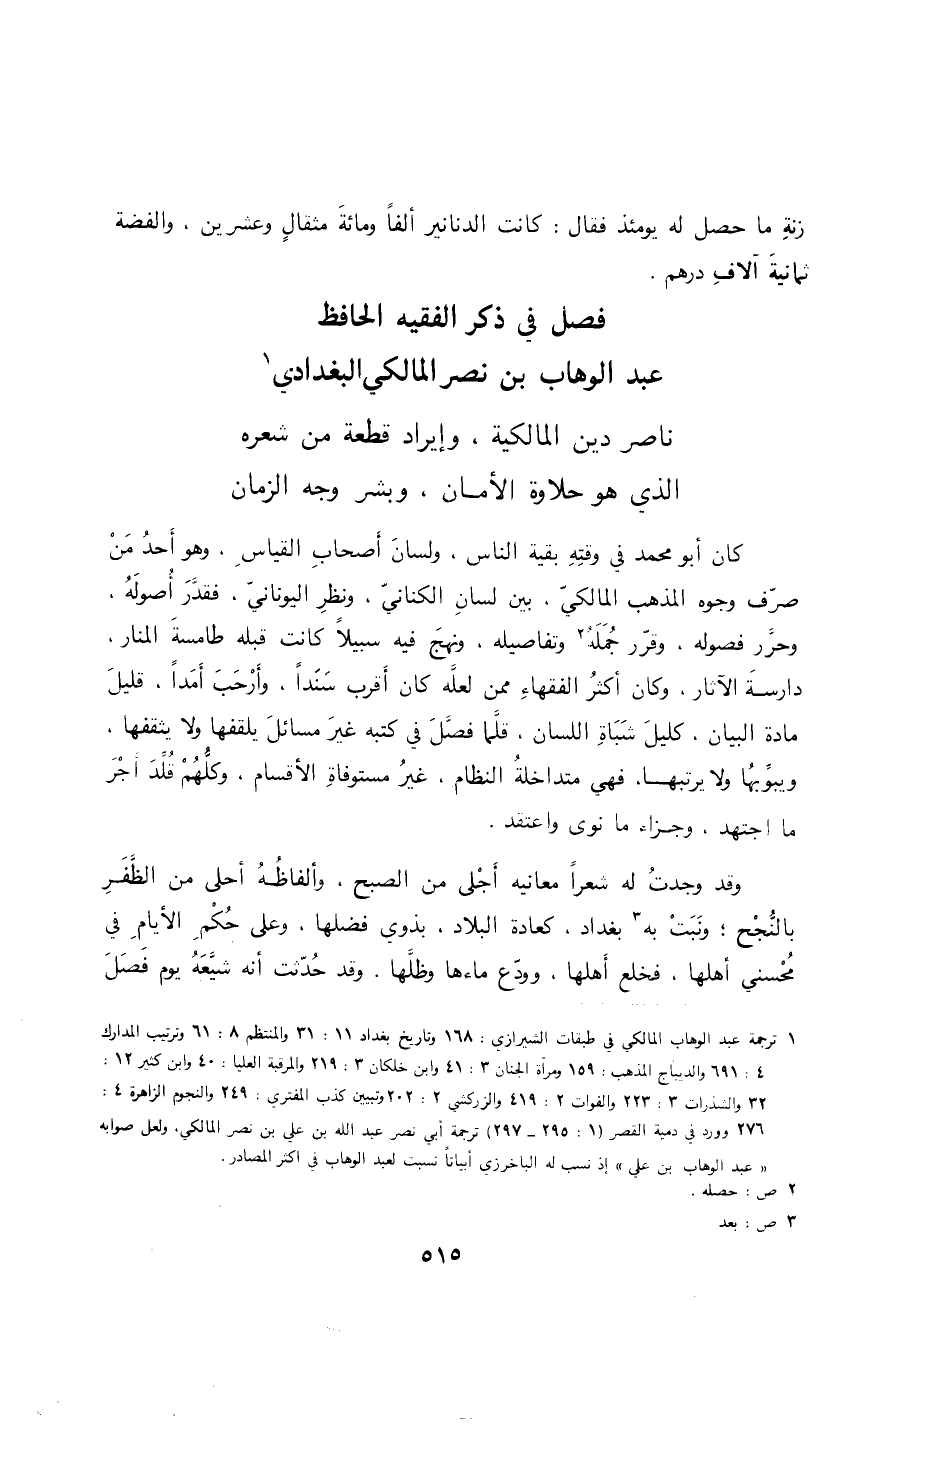 زنةِ ما حصل له يومئذ فقال : كانت الدنانير ألفاً ومائةَ مثقالٍ وعشرين ، والفضة
ثمانيةَ آلافِ درهم .
فصل في ذكر الفقيه الحافظ
عبد الوهاب بن نصر المالكي البغدادي١
ناصر دين المالكية ، وإيراد قطعة من شعره
الذي هو حلاوة الأمان ، وبشر وجه الزمان
كان أبو محمد في وقتِهِ بقية الناس ، ولسانَ أصحابِ القياسِ ، وهو أَحدُ مَنْ
صرّف وجوه المذهب المالكيّ ، بين لسانِ الكنانيّ ، ونظرِ اليونانيّ ، فقدَّرَ أُصولَهُ ،
وحرَّر فصوله ، وقرّر جُمَلَهُ٢ وتفاصيله ، ونهجَ فيه سبيلاً كانت قبله طامسةَ المنار ،
دارسةَ الآثار ، وكان أكثرُ الفقهاءِ ممن لعلَّه كان أقرب سَنَداً ، وأَرْحَبَ أَمَداً ، قليلَ
مادة البيان ، كليلَ شَبَاةِ اللسان ، قلَّما فصَّلَ في كتبه غيرَ مسائلَ يلقفها ولا يثقفها ،
ويبوِّبُها ولا يرتبهـا، فهي متداخلةُ النظام ، غيرُ مستوفاةِ الأقسام ، وكلُّهُمْ قُلِّدَ أجْرَ
ما اجتهد ، وجـزاء ما نوى واعتقد .
وقد وجدتُ له شعراً معانيه أَجْلى من الصبح ، وألفاظُـهُ أحلى من الظَّفَرِ
بالنُّجْح ؛ ونَبَتْ به٣ بغداد ، كعادة البلاد ، بذوي فضلها ، وعلى حُكْمِ الأيامِ في
مُحْسني أهلها ، فخلع أَهلها ، وودّع ماءها وظلَّها . وقد حُدّثت أنه شيَّعَهُ يوم فَصَلَ
١ ترجمة عبد الوهاب المالكي في طبقات الشيرازي : ١٦٨ وتاريخ بغداد ١١ : ٣١ والمنتظم ٨ : ٦١ وترتيب المدارك
٤ : ٦٩١ والديباج المذهب : ١٥٩ ومرآة الجنان ٣ : ٤١ وابن خلكان ٣ : ٢١٩ والمرقبة العليا : ٤٠ وابن كثير ١٢ :
٣٢ والشذرات ٣ : ٢٢٣ والفوات ٢ : ٤١٩ والزركشي ٢ : ٢٠٢ وتبيين كذب المفتري : ٢٤٩ والنجوم الزاهرة ٤ :
٢٧٦ وورد في دمية القصر (١ : ٢٩٥ ـ ٢٩٧) ترجمة أبي نصر عبد الله بن علي بن نصر المالكي، ولعل صوابه
« عبد الوهاب بن علي » إذ نسب له الباخرزي أبياتاً نسبت لعبد الوهاب في اكثر المصادر .
٢ ص : حصله .
٣ ص : بعد
٥١٥